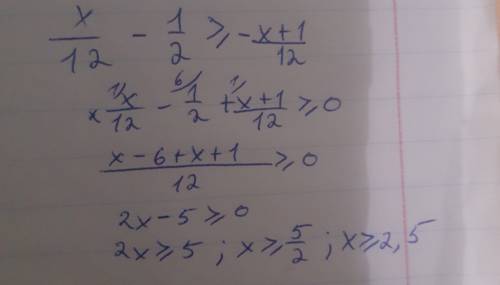 x/12 - 1/2 ≥ - x+1/12
x 1/x/12 - 6/1/2 + 1/x+1/12 ≥ 0
x - 6 + x + 1/12 ≥ 0
2x - 5 ≥ 0
2x ≥ 5 ; x ≥ 5/2 ; x ≥ 2,5